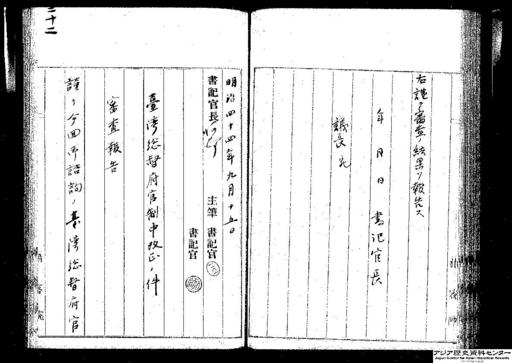 右謹テ審査ノ結果ヲ報告ス
年 月 日
書記官長
議長宛
明治四十四年九月十五日
書記官長
主筆 書記官
書記官
臺湾総督府官制中改正ノ件
審査報告
謹テ今回御諮詢ノ臺湾総督府官
二十二
アジア歴史資料センター
Japan Center for Asian Historical Records